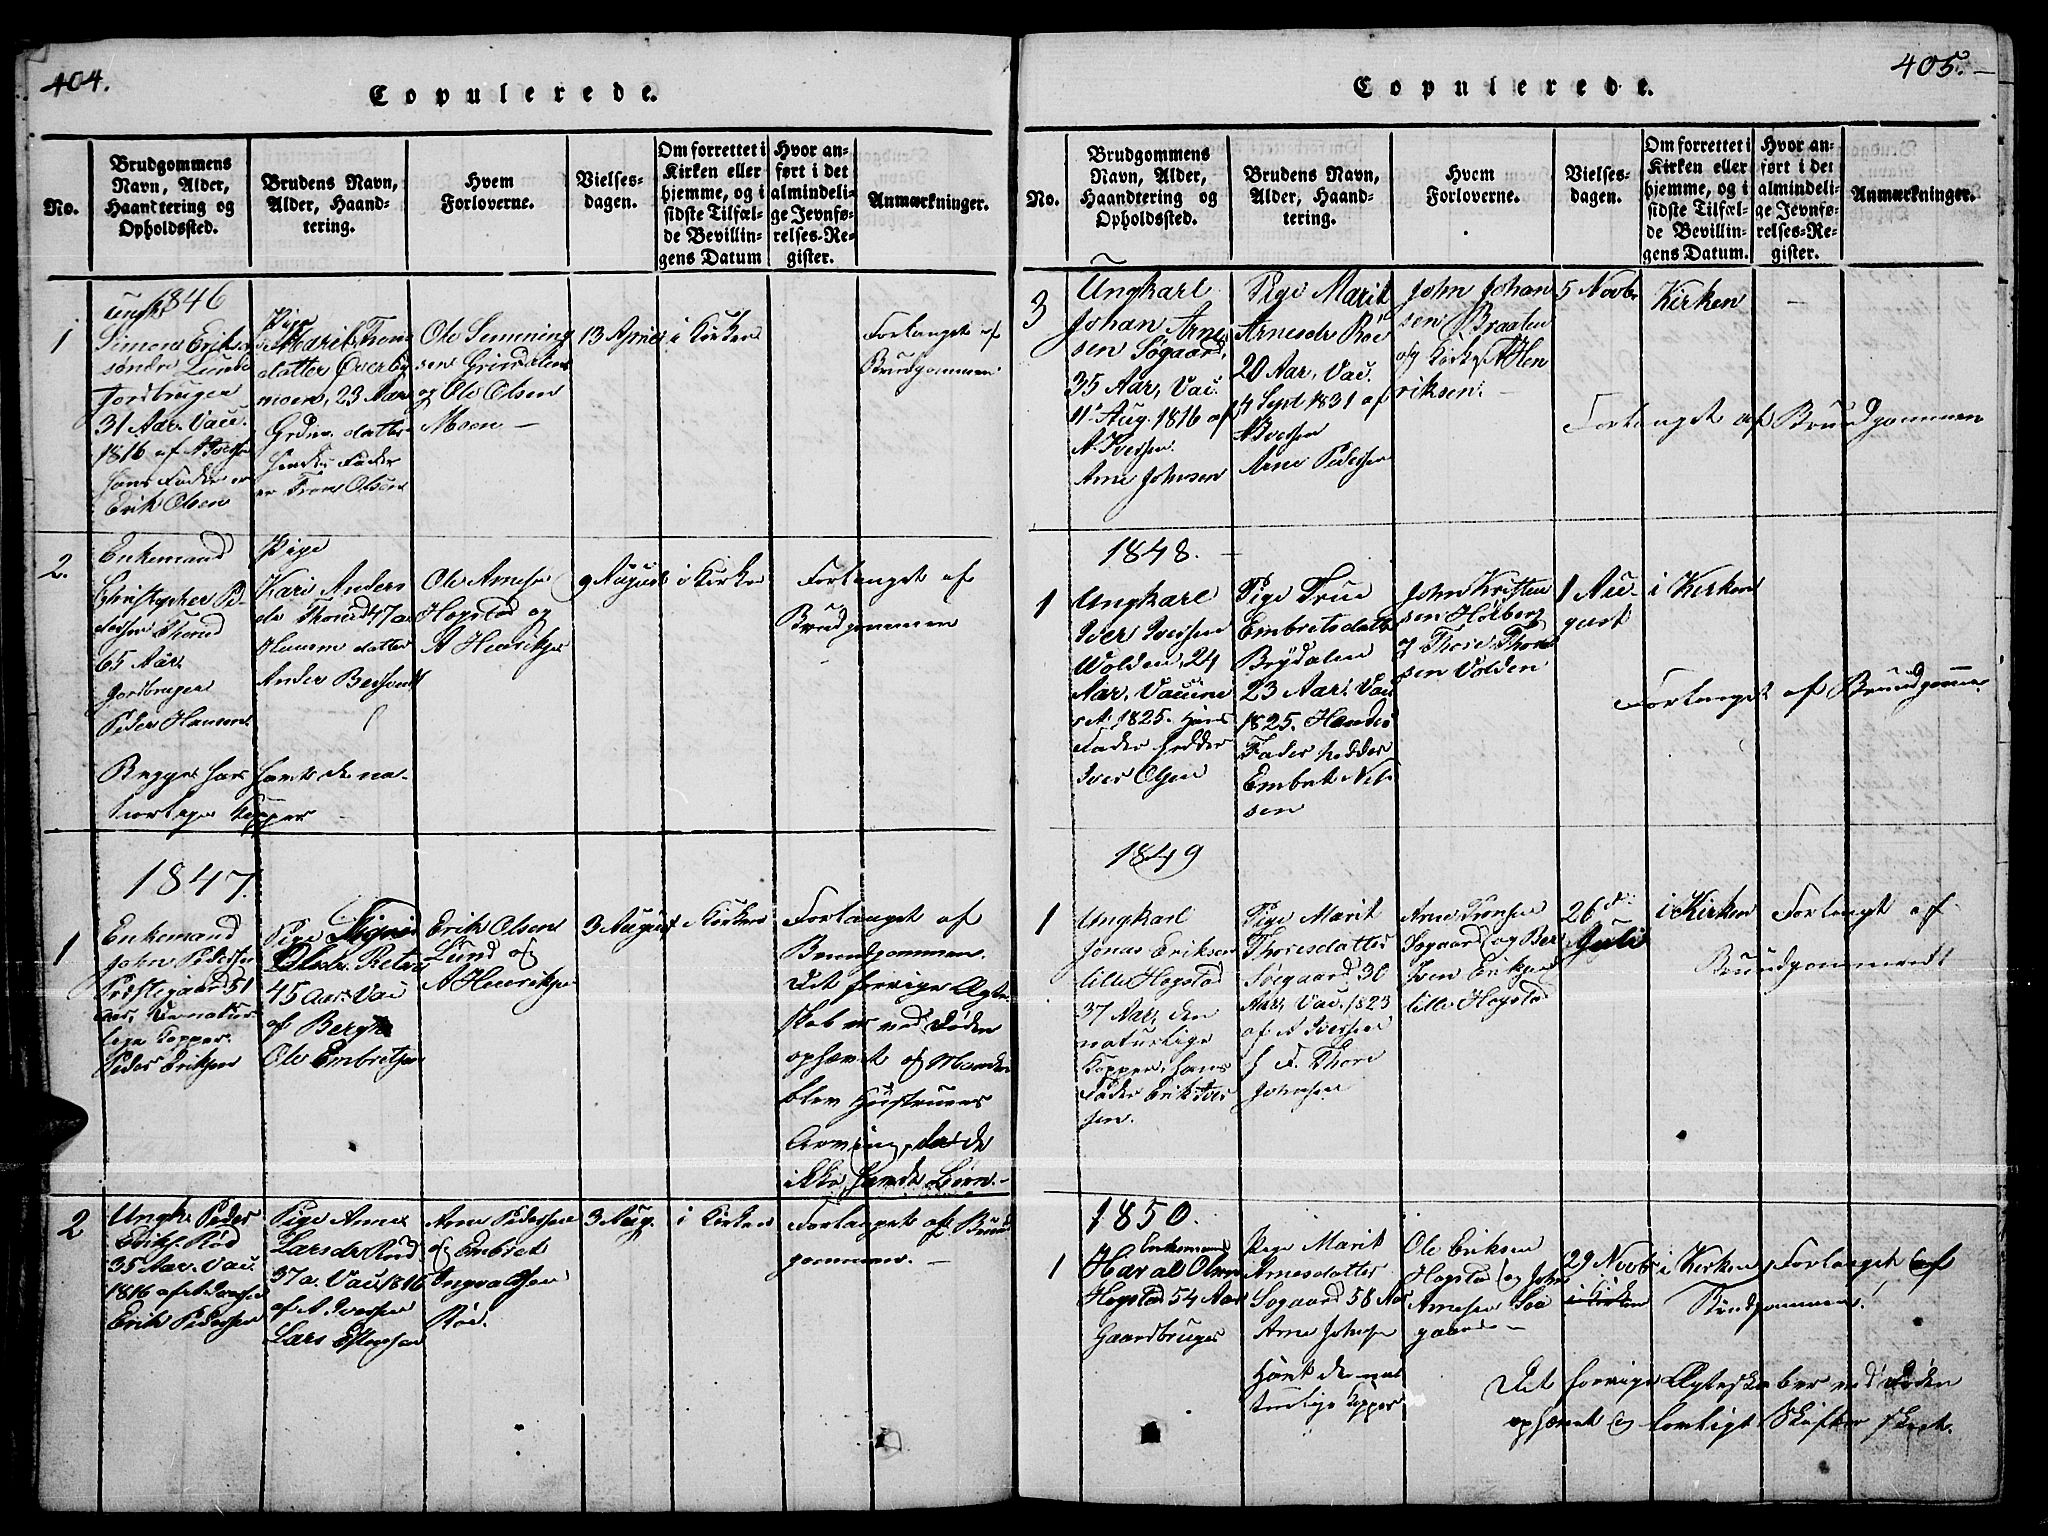 404.
Copulerede.
No.
Brudgommens
Navn, Alder,
Haandtering og
Opholdssted.
Brudens Navn,
Alder, Haand-
tering.
Hvem
Forloverne.
Vielses-
dagen.
Om forrettet i
Kirken eller
hjemme, og i
sidste Tilfæl-
de Bevillin-
gens Datum
Hvor an-
ført i det
almindeli-
ge Jevnfø-
relses-Re-
gister.
Anmærkninger.
1846
1
Ungk.
Simen Erik
søndre Lunde
Jordbruger
31 Aar. Vacc.
1816 af
hans Fader er
Erik Olsen
Pige
Marit Trons
datter Øverby
moen, 23 Aar
Grdm. datter
hendes Fader
er Tron Olsen
Ole Semming
sen Grindalen
og Ole Olsen
Moen —
13 April
i Kirken
Forlanget af
Brudgommen
2.
Enkemand
Christopher Pe-
dersen Thorud
65 Aar
Jordbruger
Peder Hansen
Pige
Kari Anders
dr Thorud 47 a
datter
Anders
Ole Arnesen
Hogstad og
A Henriksen
9 August
i Kirken
Forlanget af
Brudgommen
Begge har havt de na-
turlige Kopper
1847.
1
Enkemand
John Pedersen
Præstegaard 51
Aar, De natur
lige Kopper.
Peder Eriksen
Pige Signe
Olsdr.
45 Aar. Vac
af Bergh
Ole Embretsen
Erik Olsen
Lund og
A Henriksen
3 August
i Kirken
Forlanget af
Brudgommen.
Det forrige Ægte-
skab er ved Døden
ophævet og Manden
blev Hustruens
Arving, da de
ikke havde Børn. —
2
Ungk. Peder
Eriks. Röd
35 Aar. Vac.
1816 af A Iversen
Erik Pedersen
Pige Anne
Larsdr Röd
37 a. Vac 1816
af A Iversen
Lars Estensen
Arne Pedersen
og Embret
Ingvaldsen
Röe.
3 Aug.
i Kirken
Forlanget af Brud
gommen. —
405. —
Copulerede.
No.
Brudgommens
Navn, Alder,
Haandtering og
Opholdssted.
Brudens Navn,
Alder, Haand-
tering.
Hvem
Forloverne.
Vielses-
dagen.
Om forrettet i
Kirken eller
hjemme, og i
sidste Tilfæl-
de Bevillin-
gens Datum.
Hvor an-
ført i det
almindeli-
ge Jevnfø-
relses-Re-
gister.
Anmærkninger.
3
Ungkarl
Johan Arne
sen Søgaard,
35 Aar, Vac.
11te Aug. 1816 af
A. Iversen.
Arne Johnsen
Pige Marit
Arnesdr Röe
20 Aar, Vac.
4 Sept 1831 af
A Iversen
Arne Pedersen
John Johan
sen Braaten
og Kirkes. A Hen
riksen. —
5 Novbr
Kirken
—
Forlanget af Brudgommen
1848. —
1
Ungkarl
Iver Iversen
Wolden, 24
Aar. Vaccine
1825. Hans
Fader hedder
Iver Olsen
Pige True
Embretsdatter
Brydalen
23 Aar. Vac
1825. Hendes
Fader hedder
Embret Nil-
sen
John Kristen
sen Hòlberg
og Thore Thore
sen Volden
1 Au-
gust
i Kirken
Forlanget af Brudgommen
1849
1
Ungkarl
Jonas Eriksen
lille Hogstad
37 Aar, den
naturlige
Kopper, hans
Fader Erik Iver
sen.
Pige Marit
Thoresdatter
Søegaard 30
Aar, Vac. 1823
af A Iversen
h F. Thore
Johnsen
Arne Tronsen
Søgaard og Ber
Iven Eriksen
lille Hogstad
26 d.
Juli
i Kirken
Forlangt af
Brudgommen
1850.
1
Enkemand
Harald Olsen
Hogstad 54 Aar
Gaardbruger
Pige Marit
Arnesdatter
Sogaard 58 Aar
Arne Johnsen
Havt de na
turlige Kopper
Ole Eriksen
Hogstad og John
Arnesen Søe
gaard —
29 Novbr
i Kirken
i Kirken
Forlanget af
Brudgommen.
Det forrige Ægteskab er ved Døden
ophævet og lovligt Skifte skeet.